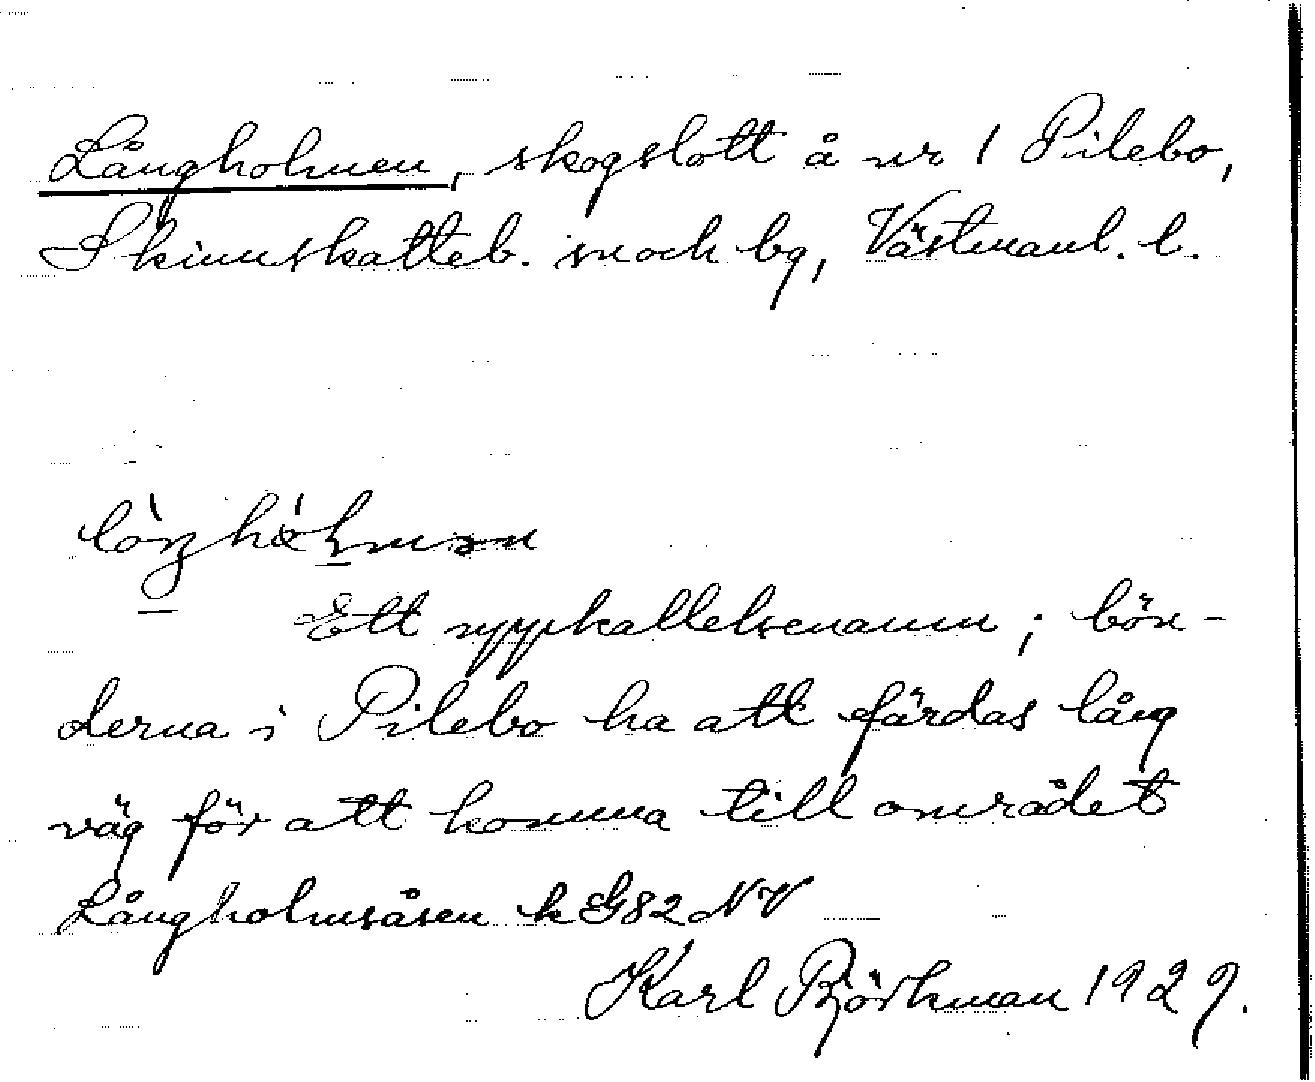 Långholmen, skogslott å nr 1 Pilebo,
Skinnskatteb. sn och bg, Västmanl. l.
Ett uppkallelsenamn; bön-
derna i Pilebo ha att färdas lång
väg för att komma till området
Långholmsåsen k G82 NV
Karl Björkman 1929.